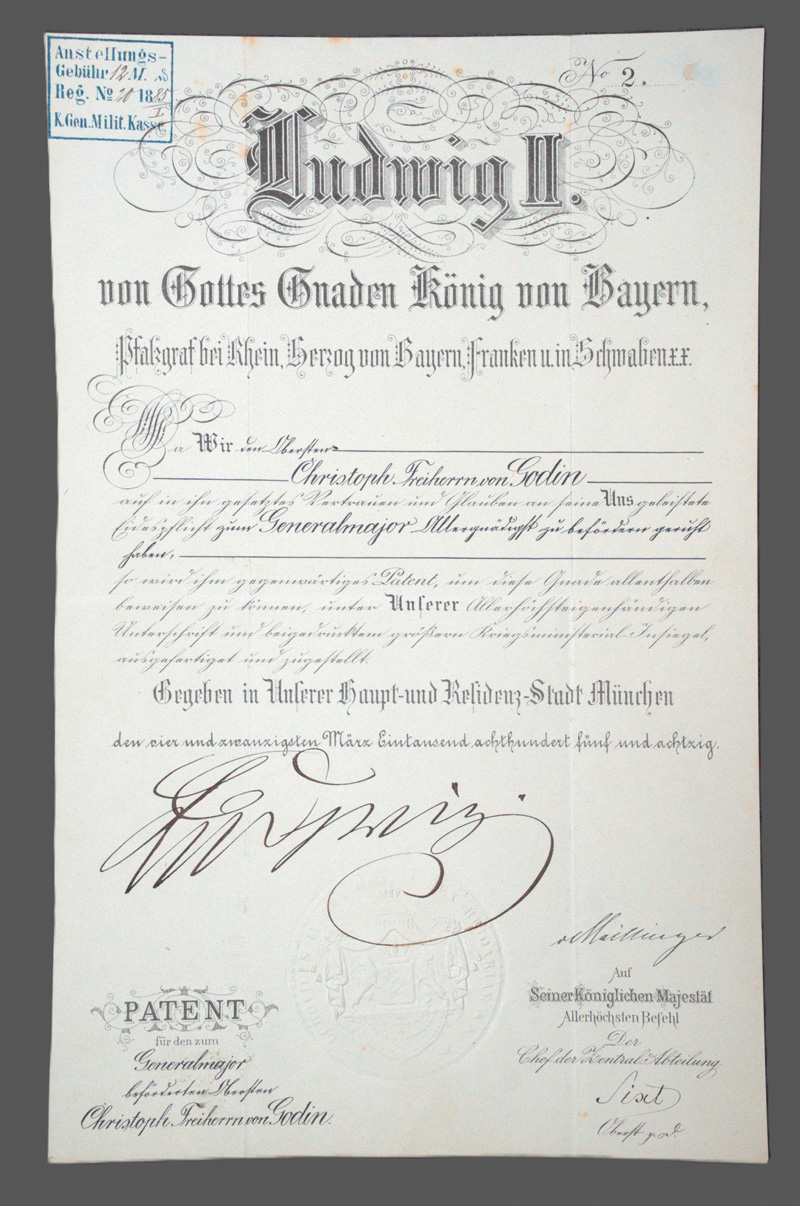 Anstellungs-
Gebühr 12 M. ₰
Reg. No 20 1885
K. Gen. Milit. Kasse.
No 2.
Ludwig II.
von Gottes Gnaden König von Bayern,
Pfalzgraf bei Rhein, Herzog von Bayern, Franken u. in Schwaben x.x.
Da Wir den Obersten
Christoph Freiherrn von Godin
auf in ihn gesetztes Vertrauen und Glauben an seine Uns geleistete
Eidespflicht zum Generalmajor Allergnädigst zu befördern geruht
haben,
so wird ihm gegenwärtiges Patent, um diese Gnade allenthalben
beweisen zu können, unter Unserer Allerhöchsteigenhändigen
Unterschrift und beigedrucktem größern Kriegsministerial-Insiegel,
ausgefertiget und zugestellt.
Gegeben in Unserer Haupt- und Residenz-Stadt München
den vier und zwanzigsten März Eintausend achthundert fünf und achtzig.
Ludwig
v Maillinger
Auf
Seiner Königlichen Majestät
Allerhöchsten Befehl
Der
Chef der Zentral-Abteilung
Sixt
Oberst z. D.
PATENT
für den zum
Generalmajor
beförderten Obersten
Christoph Freiherrn von Godin.